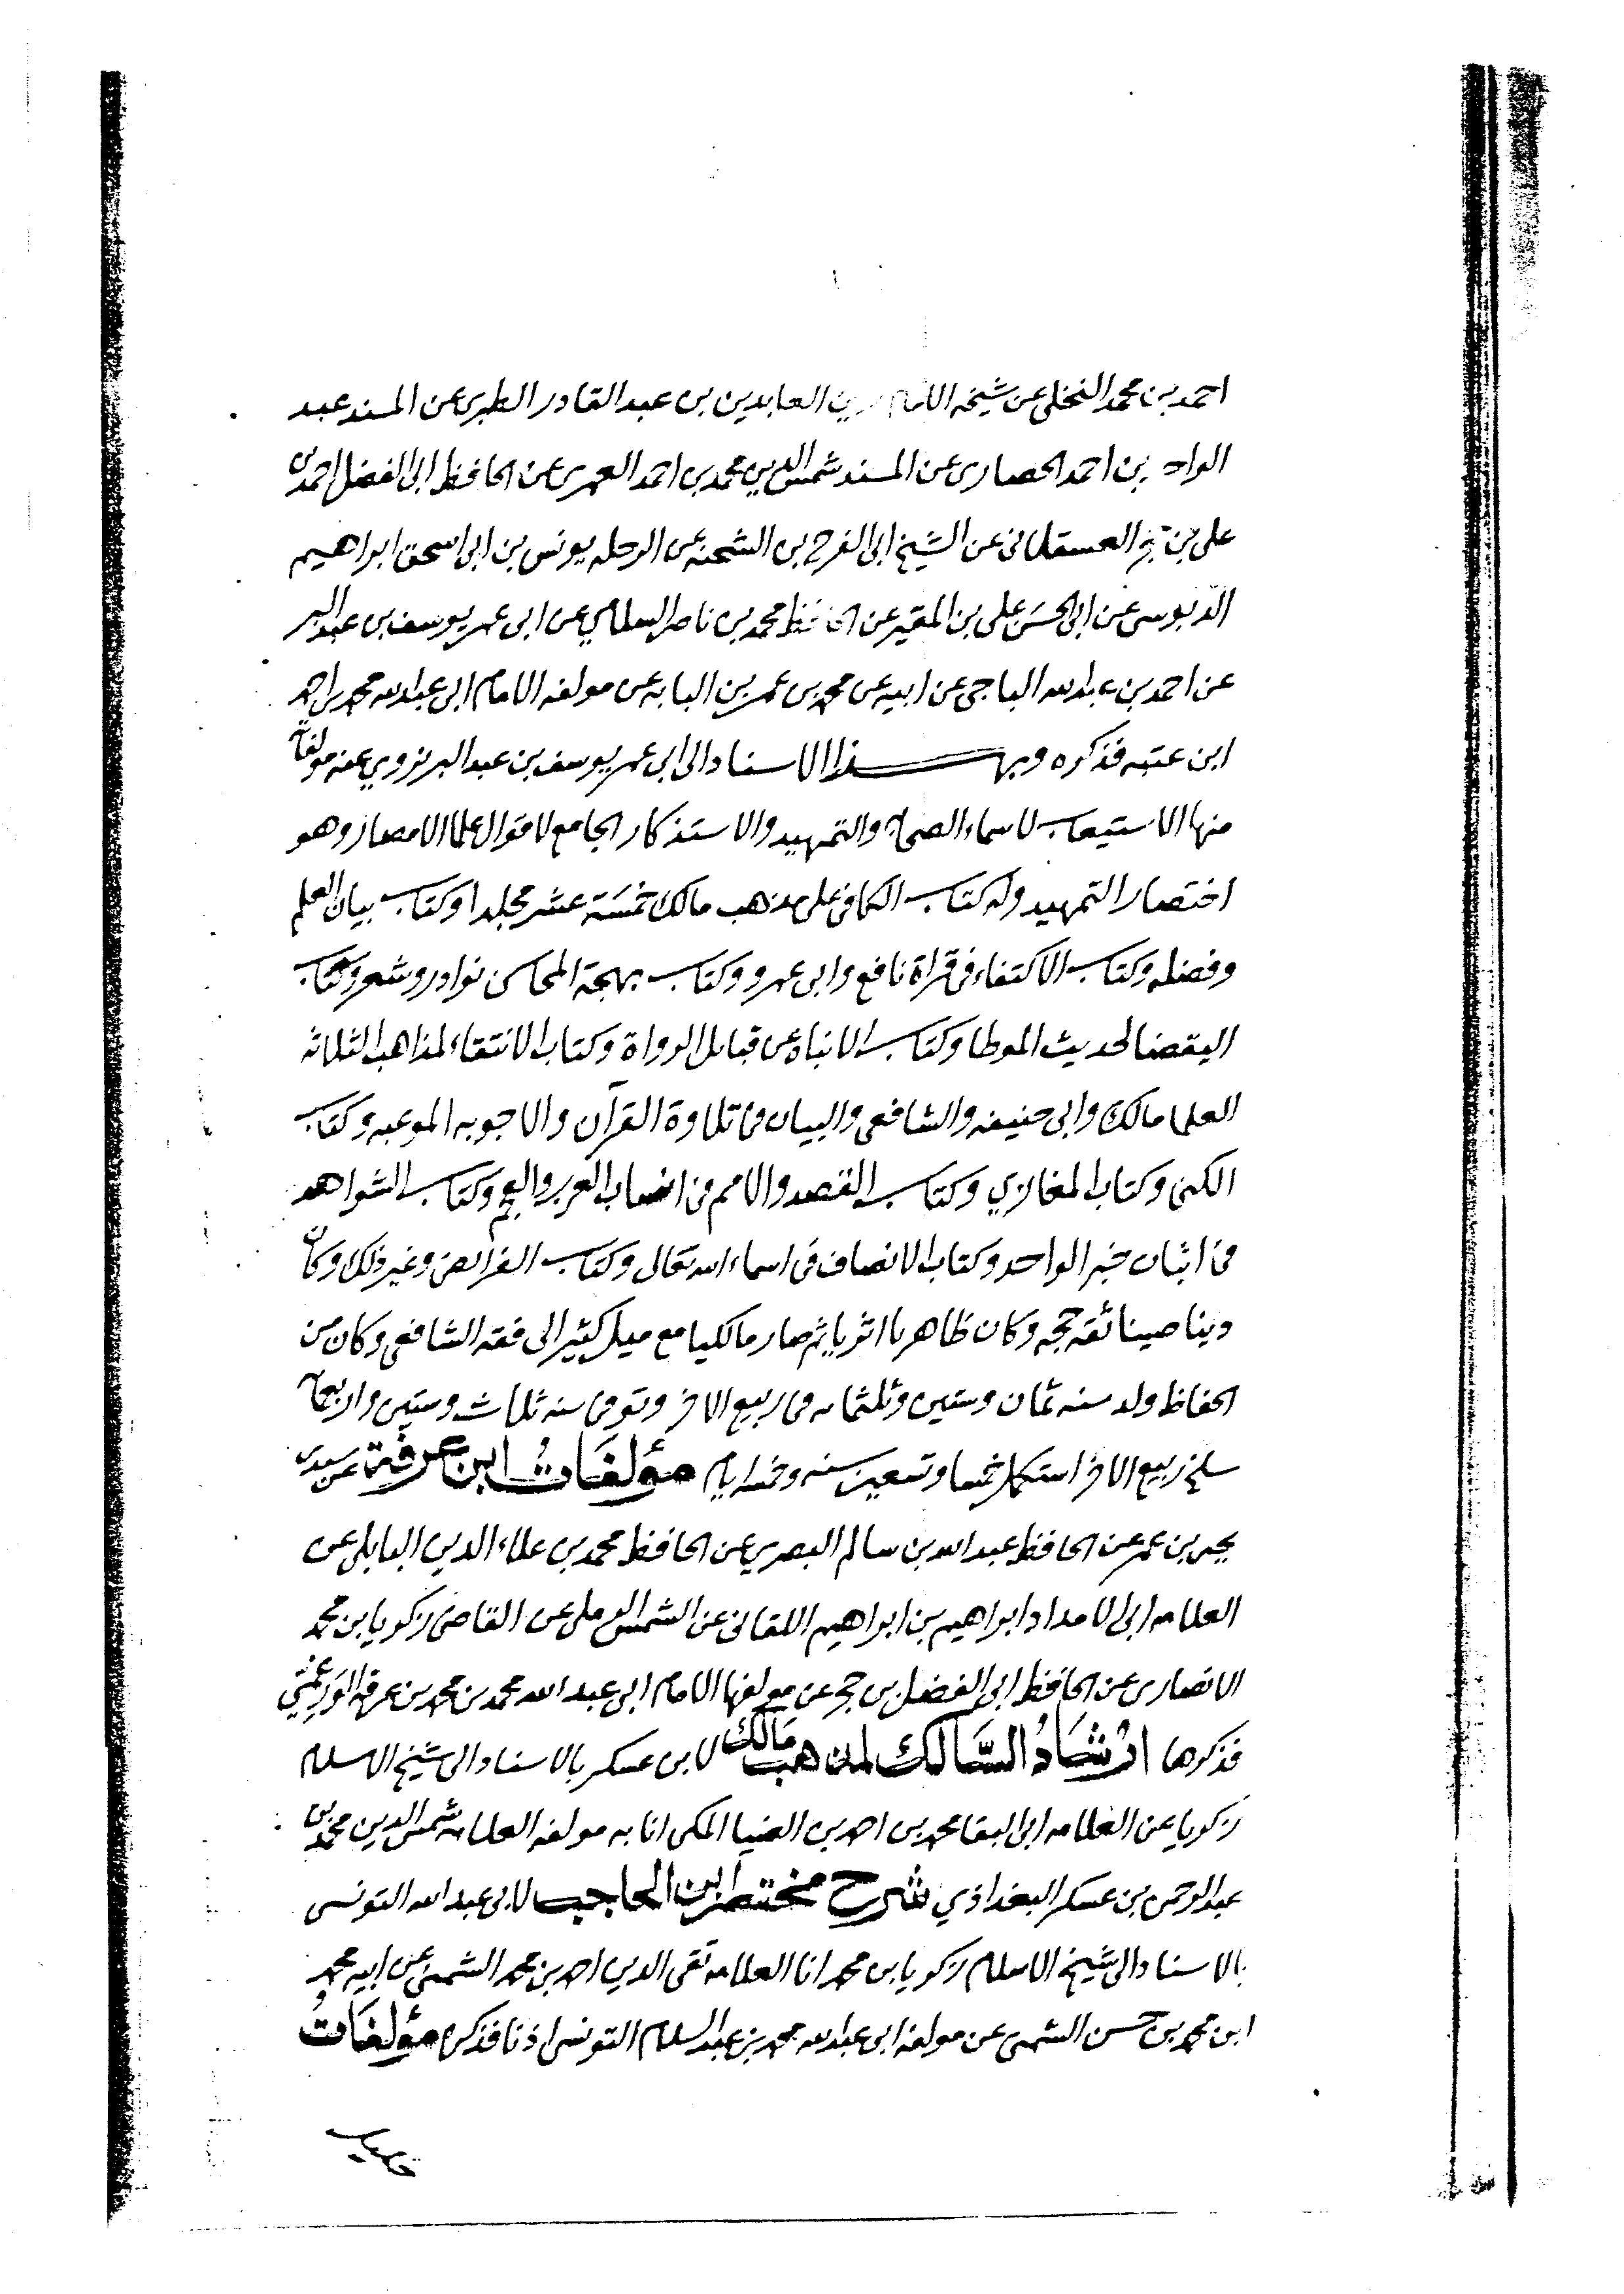 احمد بن محمد النخلى عن شيخه الامام زين العابدين بن عبد القادر الطبرى عن المسند عبد
الواحد بن احمد الحصارى عن المسند شمس الدين محمد بن احمد العمرى عن الحافظ ابى الفضل احمد بن
على بن حجر العسقلانى عن الشيخ ابى الفرج بن الشحنه عن الرحله يونس بن ابى اسحق ابراهيم
الدبوسى عن ابى الحسن على بن المقير عن الحافظ محمد بن ناصر السلامي عن ابى عمر يوسف بن عبد البر
عن احمد بن عبد الله الباجى عن ابيه عن محمد بن عمر بن البابه عن مولفه الامام ابى عبد الله محمد بن احمد
ابن عتبه فذكره وبهذا الاسناد الى ابى عمر يوسف بن عبد البر نروي عنه مولفاته
منها الاستيعاب لاسماء الصحابة والتمهيد والاستذكار الجامع لاقوال علما الامصار وهو
اختصار التمهيد وله كتاب الكافى على مذهب مالك خمسة عشر مجلدا وكتاب بيان العلم
وفضله وكتاب الاكتفاء فى قراة نافع وابى عمرو وكتاب بهجة المحاسن نوادر وشعر وكتاب
اليقضا لحديث الموطا وكتاب الانباه عن قبايل الرواة وكتاب الانتقاء لمذاهب الثلاثه
العلما مالك وابى حنيفه والشافعى والبيان فى تلاوة القرآن والاجوبه الموعبه وكتاب
الكنى وكتاب المغازي وكتاب القصد والامم فى انساب العرب والعجم وكتاب الشواهد
فى اثبات خبر الواحد وكتاب الانصاف فى اسماء الله تعالى وكتاب الفرايض وغير ذلك وكان
دينا صينا ثقه حجه وكان ظاهريا اثريا ثم صار مالكيا مع ميل كثير الى فقه الشافعى وكان من
الحفاظ ولد سنه ثمان وستين وثلثمايه فى ربيع الاخر وتوفى سنه ثلاث وستين واربعمايه
سلخ ربيع الاخر استكمل خمسا وتسعين سنه وخمسه ايام مؤلفات ابن عرفة عن سيدى
يحيى بن عمر عن الحافظ عبد الله بن سالم البصري عن الحافظ محمد بن علاء الدين البابلى عن
العلامه ابى الامداد ابراهيم بن ابراهيم اللقانى عن الشمس الرملى عن القاضى زكريا بن محمد
الانصارى عن الحافظ ابى الفضل بن حجر عن مولفها الامام ابى عبد الله محمد بن محمد بن عرفه الورغمتي
فذكرها ارشاد السالك لمذهب مالك لابن عسكر بالاسناد الى شيخ الاسلام
زكريا عن العلامه ابى البقا محمد بن احمد بن الضيا المكى انا به مولفه العلامه شمس الدين محمد بن
عبد الرحمن بن عسكر البغداذي شرح مختصر ابن الحاجب لابى عبد الله التونسى
بالاسناد الى شيخ الاسلام زكريا بن محمد انا العلامه تقى الدين احمد بن محمد الشمنى عن ابيه محمد
ابن محمد بن حسن الشمنى عن مولفه ابى عبد الله محمد بن عبد السلام التونسى اذنا فذكره مؤلفات